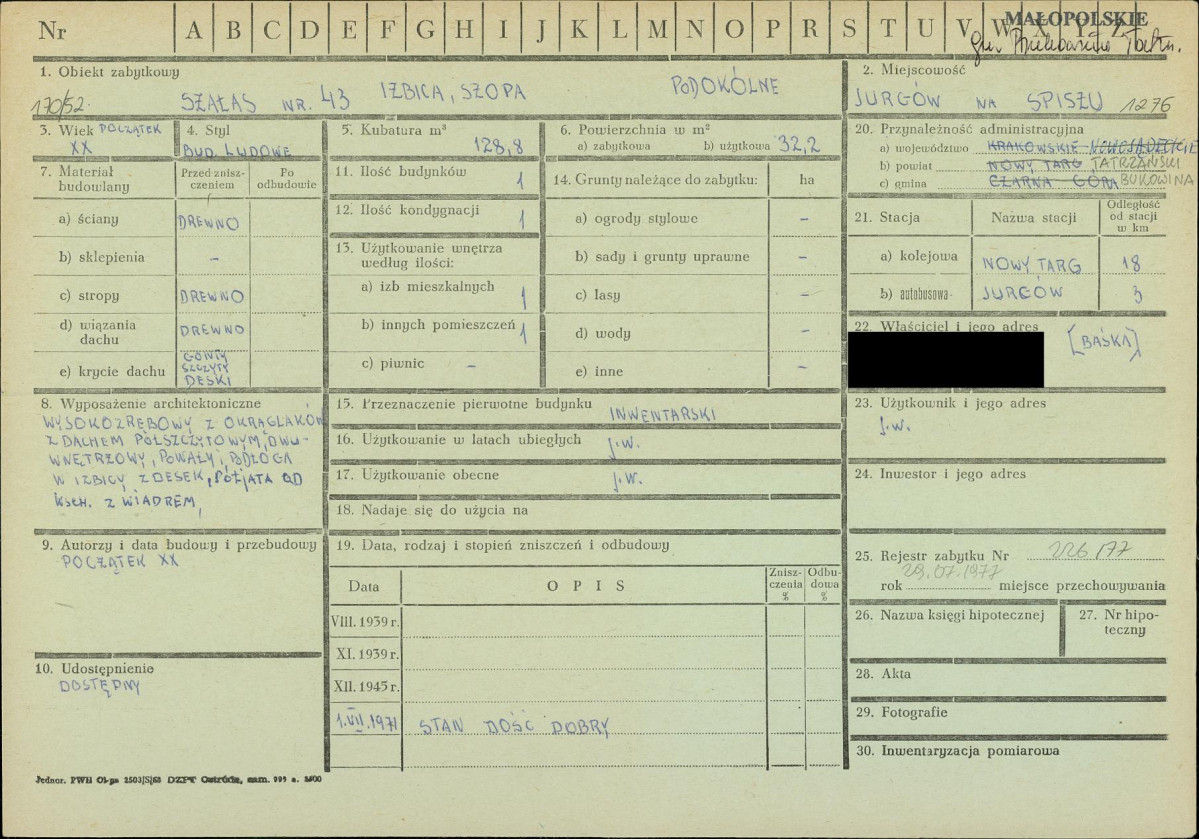 Nr A B C D E F G H I J K L M N O P R S T U V W X Y Z
MAŁOPOLSKIE
gm.
1. Obiekt zabytkowy
170/52. SZAŁAS NR. 43 IZBICA, SZOPA PODOKÓLNE
2. Miejscowość
JURGÓW NA SPISZU 1276
3. Wiek POCZĄTEK
XX
4. Styl
BUD. LUDOWE
5. Kubatura m³
128,8
6. Powierzchnia w m²
a) zabytkowa b) użytkowa 32,2
7. Materiał budowlany
Przed zniszczeniem
Po odbudowie
a) ściany DREWNO
b) sklepienia –
c) stropy DREWNO
d) wiązania dachu DREWNO
e) krycie dachu GONTY
SZCZYTY
DESKI
11. Ilość budynków 1
12. Ilość kondygnacji 1
13. Użytkowanie wnętrza
według ilości:
a) izb mieszkalnych 1
b) innych pomieszczeń 1
c) piwnic –
14. Grunty należące do zabytku: ha
a) ogrody stylowe –
b) sady i grunty uprawne –
c) lasy –
d) wody –
e) inne –
20. Przynależność administracyjna
a) województwo KRAKOWSKIE NOWOSĄDECKIE
b) powiat NOWY TARG TATRZAŃSKI
c) gmina CZARNA GÓRA BUKOWINA
21. Stacja Nazwa stacji Odległość od stacji w km
a) kolejowa NOWY TARG 18
b) autobusowa JURGÓW 3
22. Właściciel i jego adres
[BAŚKA]
8. Wyposażenie architektoniczne
WYSOKOZRĘBOWY Z OKRĄGLAKÓW
Z DACHEM PÓŁSZCZYTOWYM, DWU-
WNĘTRZOWY, POWAŁY, PODŁOGA
W IZBICY Z DESEK,
Z WIADREM,
15. Przeznaczenie pierwotne budynku INWENTARSKI
16. Użytkowanie w latach ubiegłych j.w.
17. Użytkowanie obecne j.w.
18. Nadaje się do użycia na
23. Użytkownik i jego adres
j.w.
24. Inwestor i jego adres
9. Autorzy i data budowy i przebudowy
POCZĄTEK XX
10. Udostępnienie
DOSTĘPNY
19. Data, rodzaj i stopień zniszczeń i odbudowy
Data OPIS Zniszczenia % Odbudowa %
VIII. 1939 r.
XI. 1939 r.
XII. 1945 r.
1.VII.1971 STAN DOŚĆ DOBRY
25. Rejestr zabytku Nr 226/77
29.07.1977
rok miejsce przechowywania
26. Nazwa księgi hipotecznej
27. Nr hipoteczny
28. Akta
29. Fotografie
30. Inwentaryzacja pomiarowa